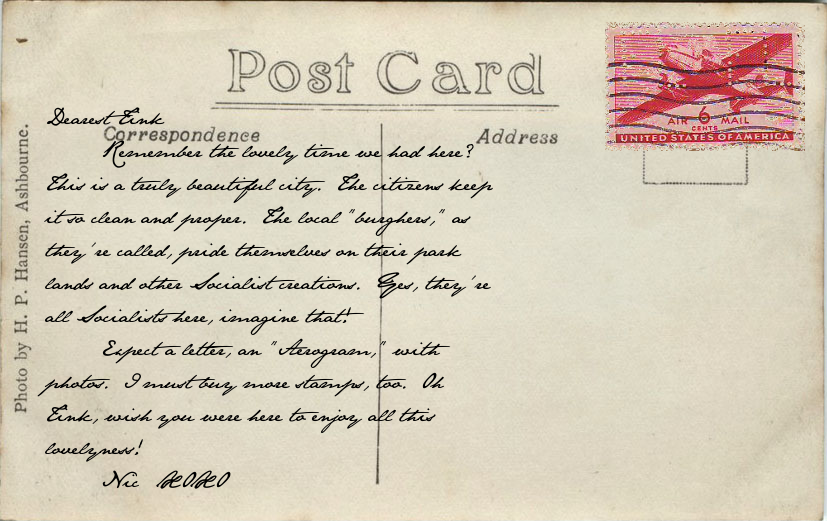 Post Card
AIR 6 MAIL
CENTS
UNITED STATES OF AMERICA
Correspondence
Address
Photo by H. P. Hansen, Ashbourne.
Dearest Tink
Remember the lovely time we had here?
This is a truly beautiful city. The citizens keep
it so clean and proper. The local "burghers," as
they're called, pride themselves on their park
lands and other Socialist creations. Yes, they're
all Socialists here, imagine that!
Expect a letter, an "Aerogram," with
photos. I must buy more stamps, too. Oh
Tink, wish you were here to enjoy all this
lovelyness!
Nic XOXO